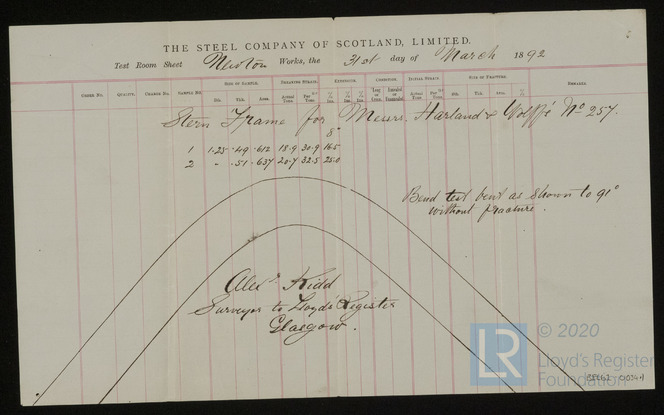 THE STEEL COMPANY OF SCOTLAND, LIMITED.
Test Room Sheet Newton Works, the 31st day of March 1892
ORDER No. QUALITY. CHARGE No. SAMPLE No. SIZE OF SAMPLE. BREAKING STRAIN. EXTENSION. INITIAL STRAIN. SIZE OF FRACTURE. REMARKS.
Dia. Thk. Area. Actual Tons. Per Tons. Actual Tons. Per Tons. Dia. Thk. Area.
Stern Frame for Messrs Harland & Wolff's No 257.
8"
1 1.25 .49 .612 18.9 30.9 16.5
2 " .51 .637 20.7 32.5 25.0
Bend test bent as shown to 91°
without fracture.
Alexr Kidd
Surveyor to Lloyds Register
Glasgow.
LR © 2020
Lloyd's Register
Foundation